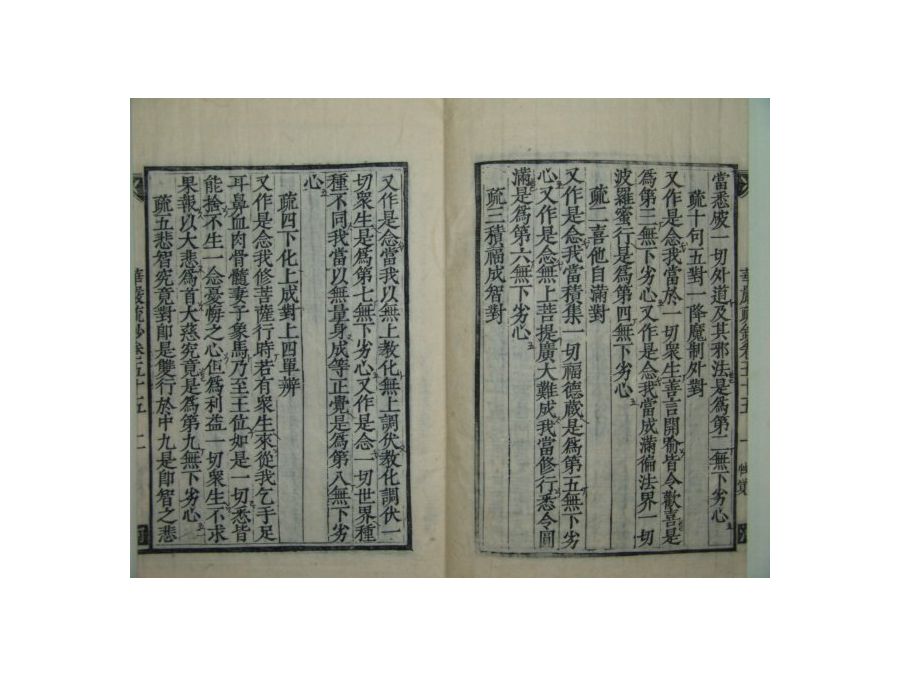 當悉破一切外道及其邪法是爲第二無下劣心
疏十句五對一降魔制外對
又作是念我當於一切衆生善言開喻皆令歡喜是
爲第三無下劣心又作是念我當成滿徧法界一切
波羅蜜行是爲第四無下劣心
疏二喜他自滿對
又作是念我當積集一切福德藏是爲第五無下劣
心又作是念無上菩提廣大難成我當修行悉令圓
滿是爲第六無下劣心
疏三積福成智對
又作是念當我以無上敎化無上調伏敎化調伏一
切衆生是爲第七無下劣心又作是念一切世界種
種不同我當以無量身成等正覺是爲第八無下劣
心
疏四下化上成對上四單辨
又作是念我修菩薩行時若有衆生來從我乞手足
耳鼻血肉骨髓妻子象馬乃至王位如是一切悉皆
能捨不生一念憂悔之心但爲利益一切衆生不求
果報以大悲爲首大慈究竟是爲第九無下劣心
疏五悲智究竟對卽是雙行於中九是卽智之悲
華嚴疏鈔卷五十五 二